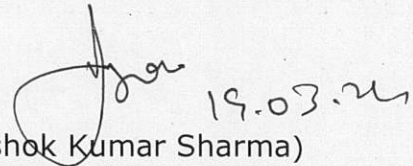 19.03.24
shok Kumar Sharma)